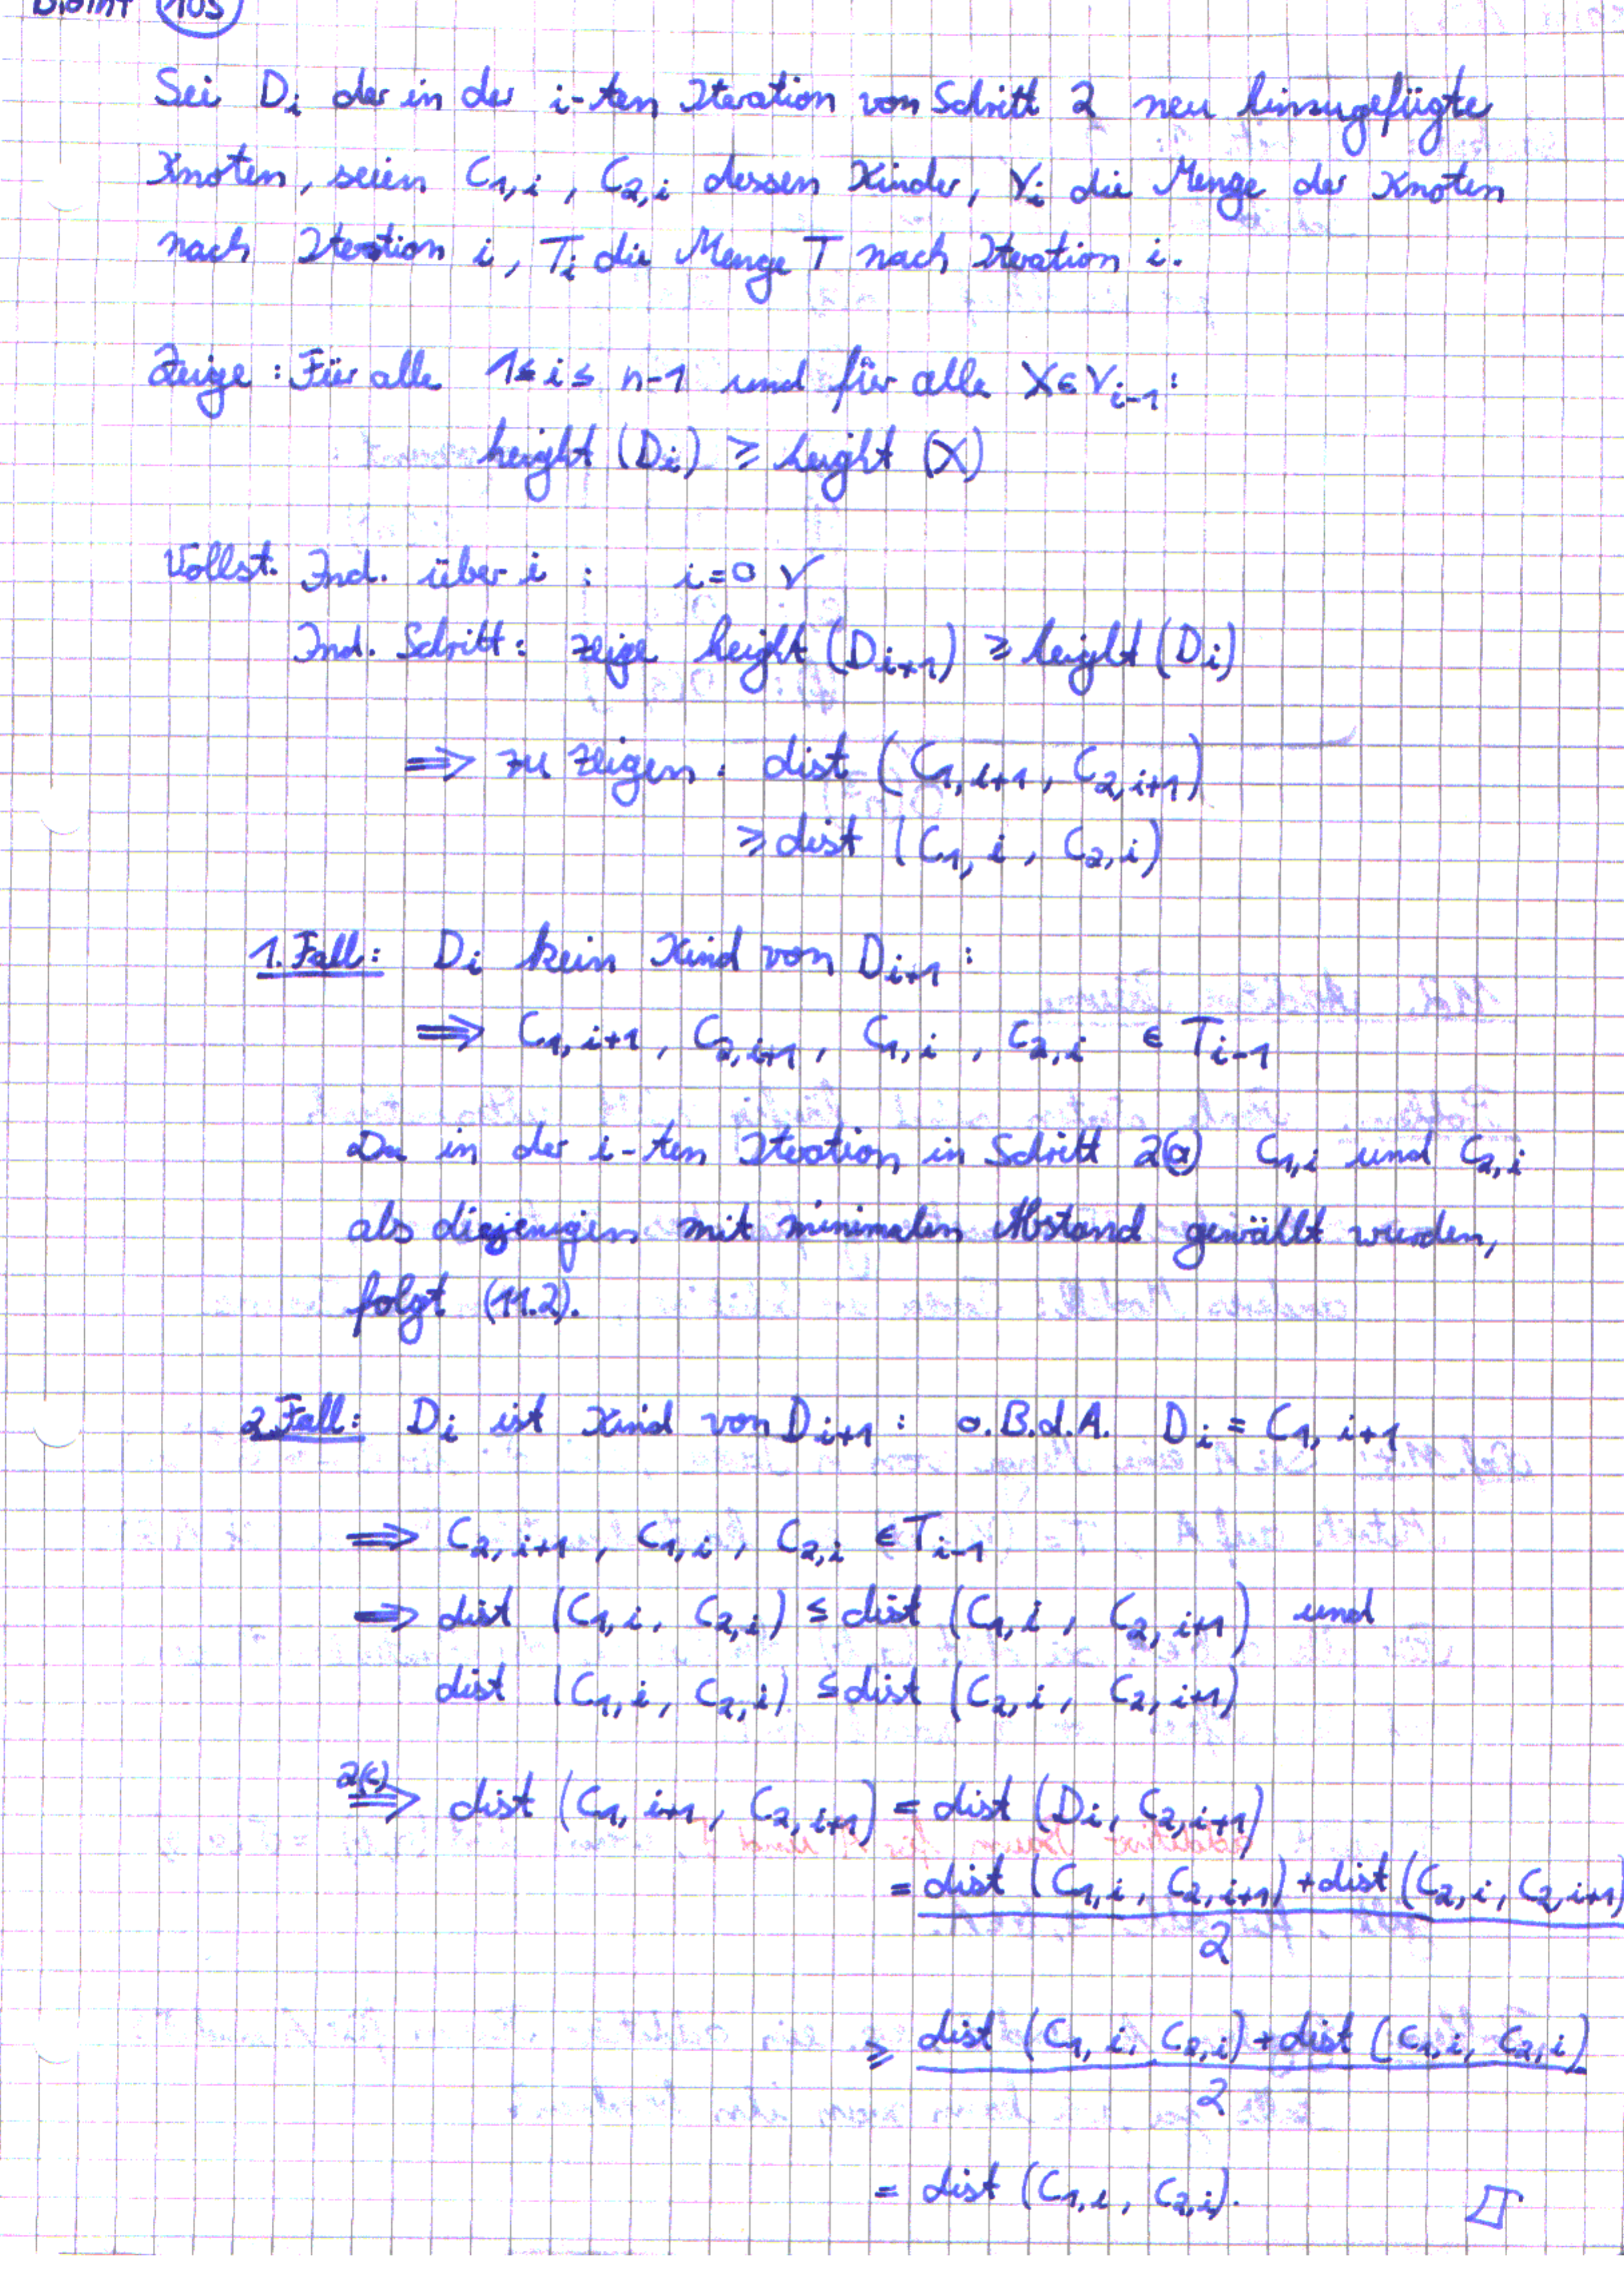 BioInf 105
Sei D_i der in der i-ten Iteration von Schritt 2 neu hinzugefügte
Knoten, seien C_{1,i}, C_{2,i} dessen Kinder, V_i die Menge der Knoten
nach Iteration i, T_i die Menge T nach Iteration i.
Zeige: Für alle 1 ≤ i ≤ n-1 und für alle X ∈ V_{i-1}:
height (D_i) ≥ height (X)
Vollst. Ind. über i : i=0 ✓
Ind. Schritt: zeige height (D_{i+1}) ≥ height (D_i)
⟹ zu zeigen: dist (C_{1,i+1}, C_{2,i+1})
≥ dist (C_{1,i}, C_{2,i})
1. Fall: D_i kein Kind von D_{i+1} :
⟹ C_{1,i+1}, C_{2,i+1}, C_{1,i}, C_{2,i} ∈ T_{i-1}
Da in der i-ten Iteration in Schritt 2(a) C_{1,i} und C_{2,i}
als diejenigen mit minimalen Abstand gewählt wurden,
folgt (11.2).
2. Fall: D_i ist Kind von D_{i+1} : o.B.d.A. D_i = C_{1,i+1}
⟹ C_{2,i+1}, C_{1,i}, C_{2,i} ∈ T_{i-1}
⟹ dist (C_{1,i}, C_{2,i}) ≤ dist (C_{1,i}, C_{2,i+1}) und
dist (C_{1,i}, C_{2,i}) ≤ dist (C_{2,i}, C_{2,i+1})
2(c) ⟹ dist (C_{1,i+1}, C_{2,i+1}) = dist (D_i, C_{2,i+1})
= dist (C_{1,i}, C_{2,i+1}) + dist (C_{2,i}, C_{2,i+1})
2
≥ dist (C_{1,i}, C_{2,i}) + dist (C_{1,i}, C_{2,i})
2
= dist (C_{1,i}, C_{2,i}). □